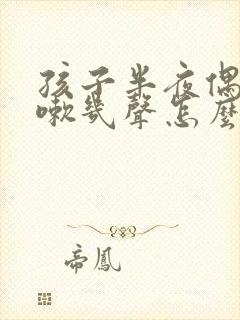 孩子半夜偶
嗽幾聲怎麼
帝鳳